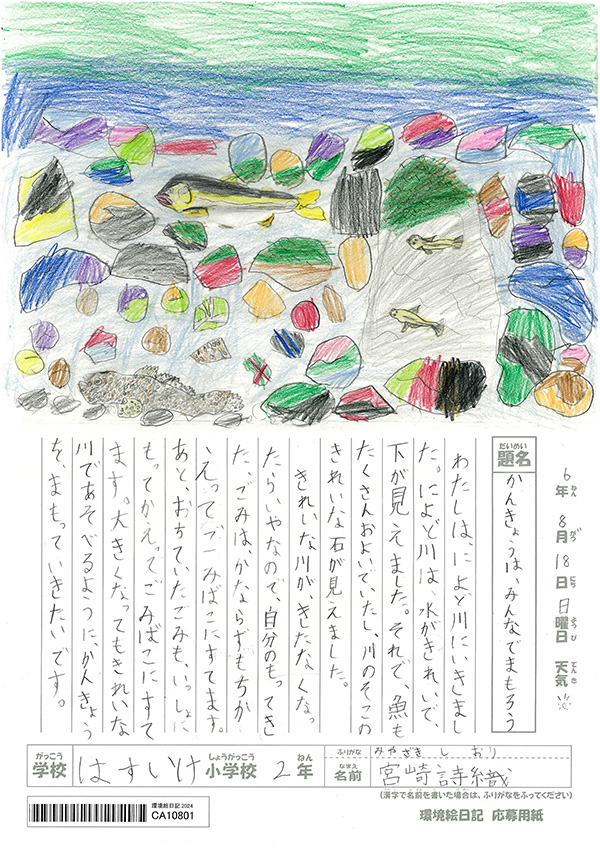 6年 8月 18日 日曜日 天気
ねん がつ にち ようび てんき
だいめい
題名
かんきょうは、みんなでまもろう
わたしは、によど川にいきまし
た。によど川は、水がきれいで、
下が見えました。それで、魚も
たくさんおよいでいたし、川のそこの
きれいな石が見えました。
きれいな川が、きたなくなっ
たらいやなので、自分のもってき
た、ごみは、かならずもちか
えってごみばこにすてます。
あと、おちていたごみも、いっしょに
もってかえってごみばこにすて
ます。大きくなってもきれいな
川であそべるように、かんきょう
を、まもっていきたいです。
がっこう しょうがっこう ねん
学校 はすいけ 小学校 2年
ふりがな みやざき しおり
なまえ
名前 宮崎詩織
(漢字で名前を書いた場合は、ふりがなをふってください)
環境絵日記 2024
CA10801
環境絵日記 応募用紙